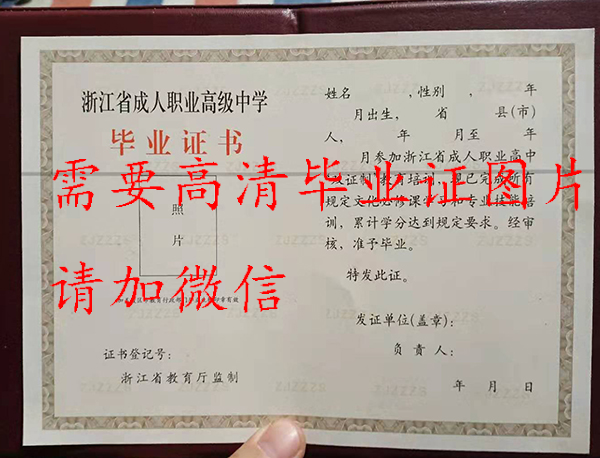 浙江省成人职业高级中学
毕业证书
照
片
证书登记号:
浙江省教育厅监制
姓名　　　,性别　　,　　年
月出生,　　省　　县(市)
人,　　　年　　月至　　年
月参加浙江省成人职业高中
双证制教育培训,现已完成所有
规定文化必修课学习和专业技能培
训,累计学分达到规定要求。经审
核,准予毕业。
特发此证。
发证单位(盖章):
负责人:
年　月　日
需要高清毕业证图片
请加微信